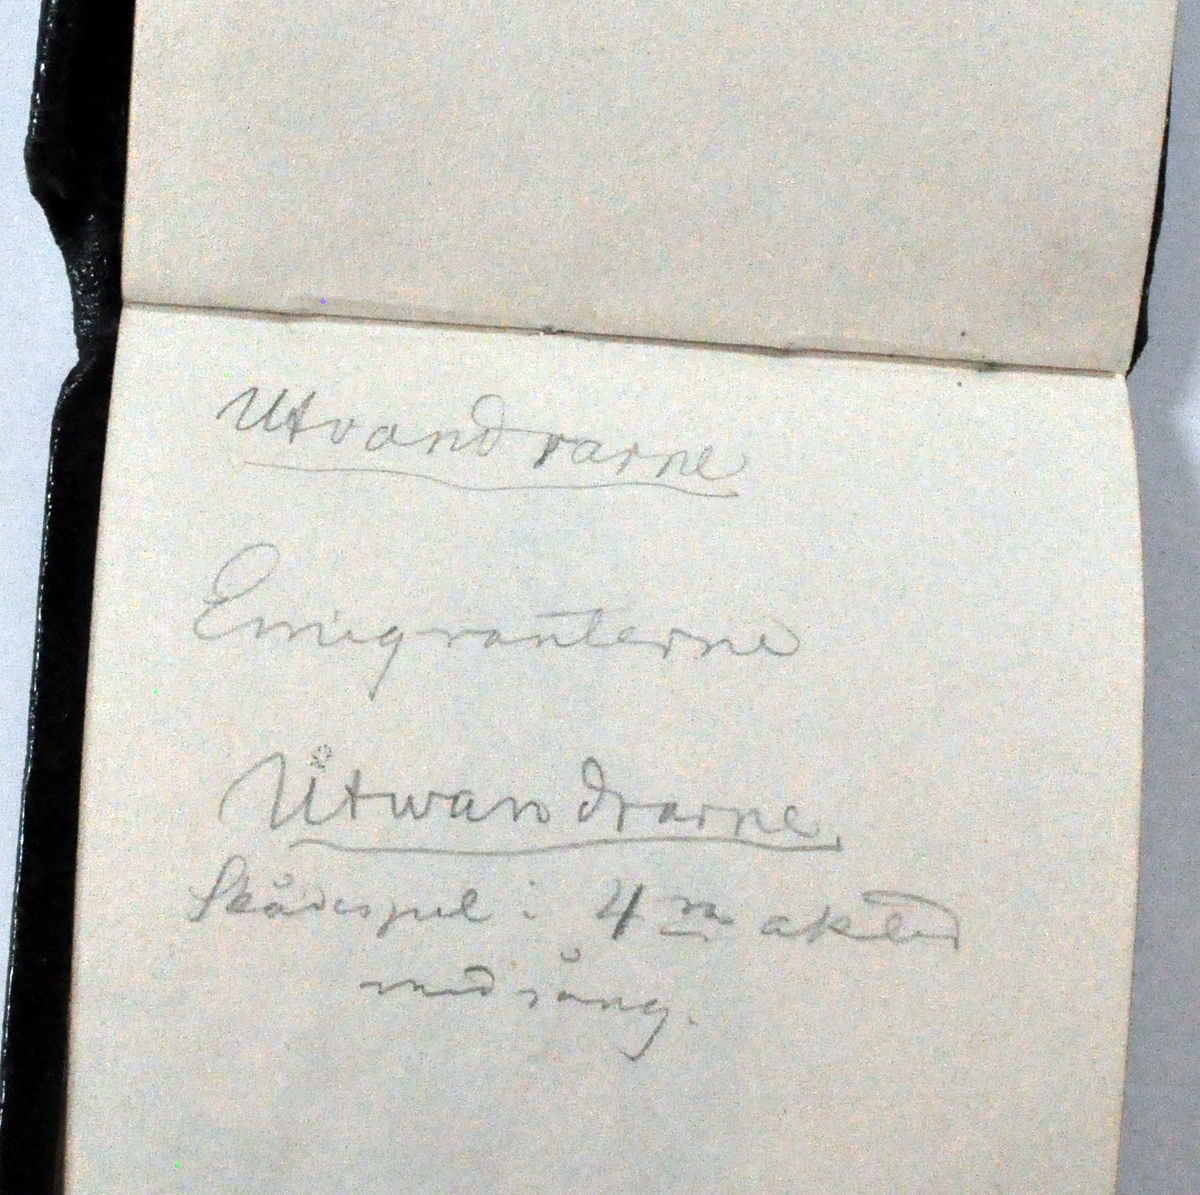 Utvandrarne
Emigranterne
Utwandrarne.
Skådespel i 4 akter
med sång.